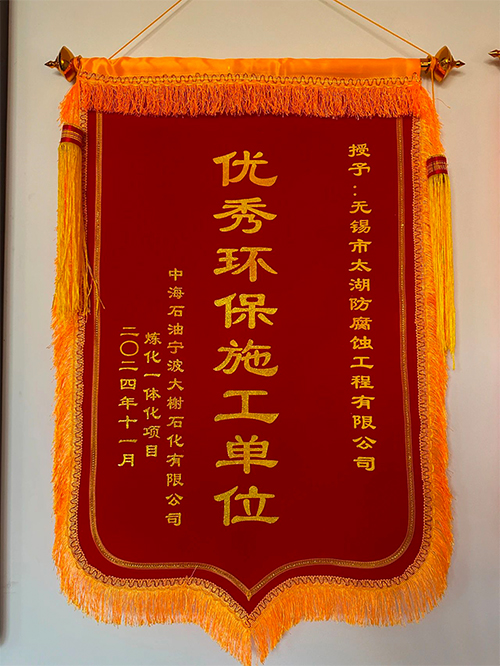 授予：无锡市太湖防腐蚀工程有限公司
优秀环保施工单位
中海石油宁波大榭石化有限公司
炼化一体化项目
二〇二四年十一月